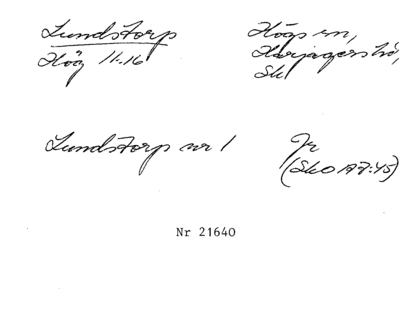 Lundstorp
Högs sn,
Hög 11.16
Harjagers hd,
Sk
Lundstorp nr 1
Jr
(SkO 177:45)
Nr 21640